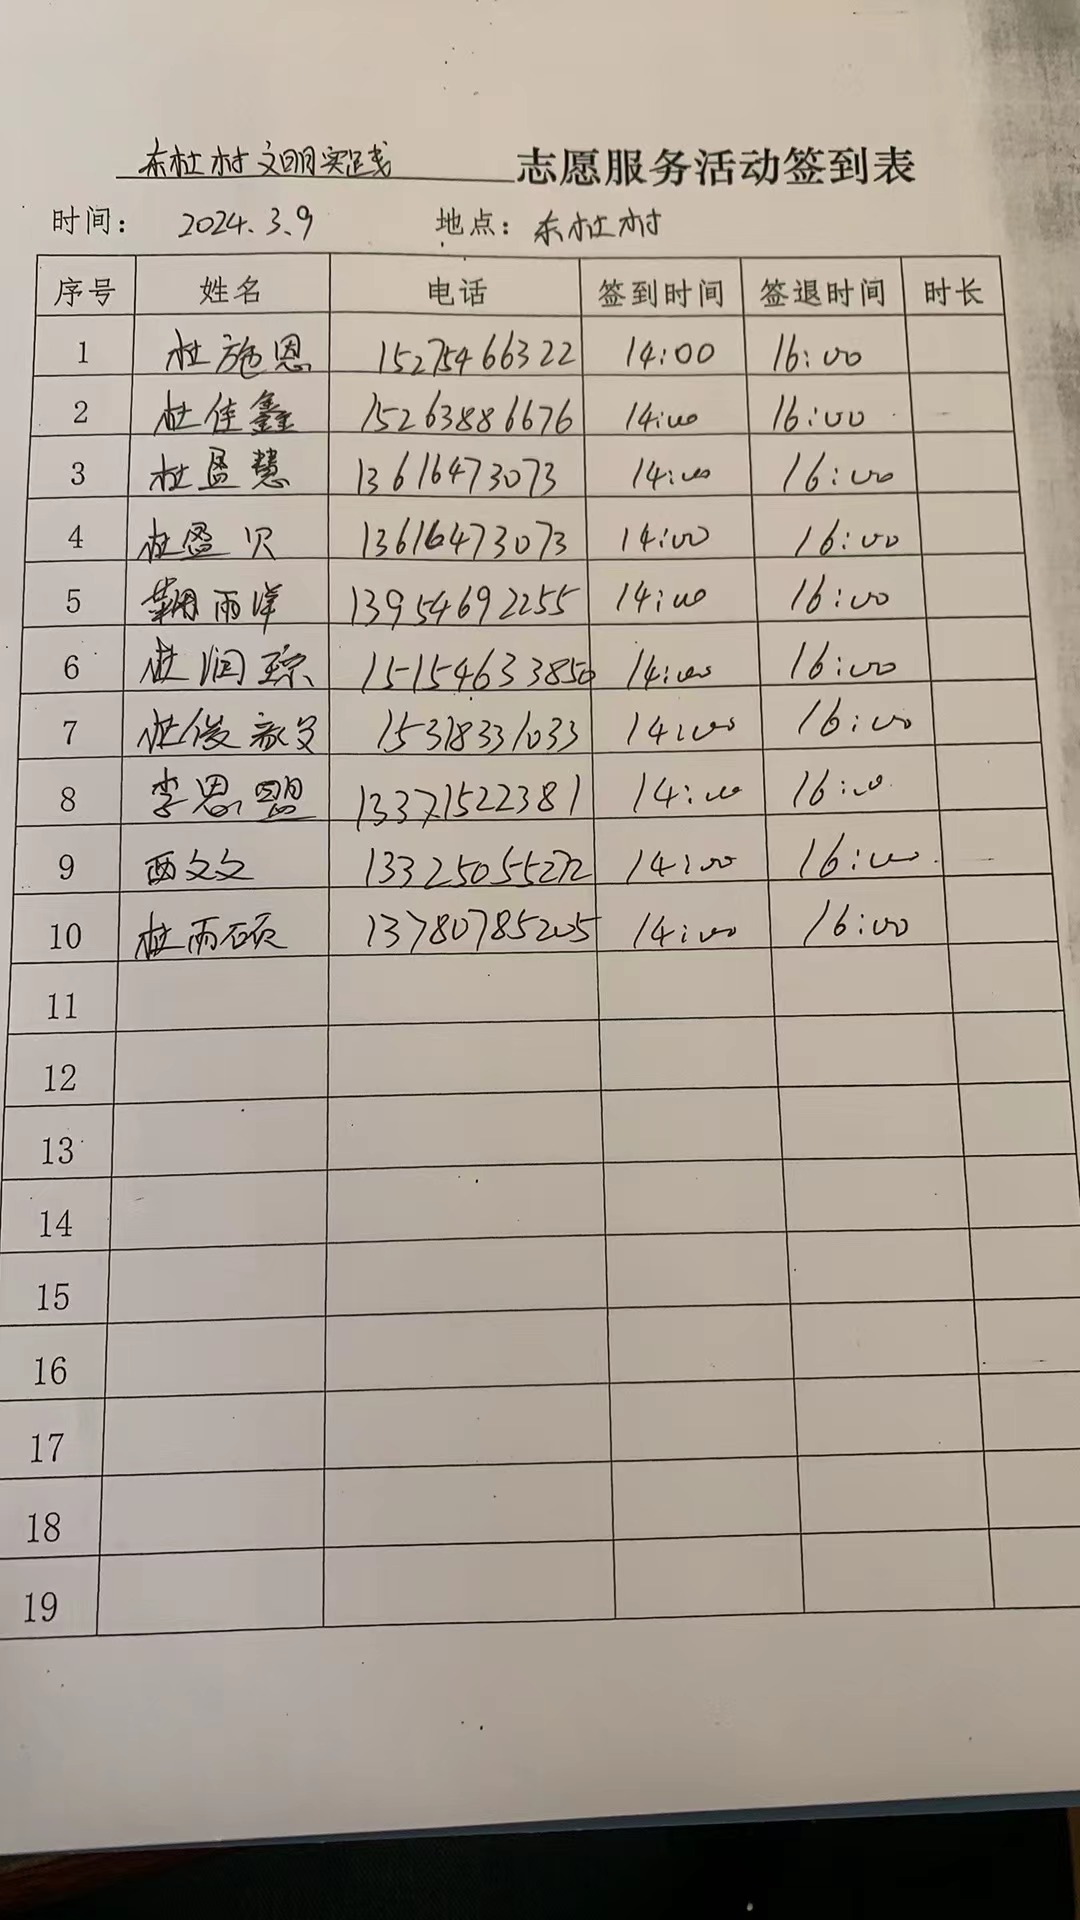 东杜村文明实践 志愿服务活动签到表
时间: 2024.3.9 地点: 东杜村
序号 姓名 电话 签到时间 签退时间 时长
1 杜施恩 15275466322 14:00 16:00
2 杜佳鑫 15263886676 14:00 16:00
3 杜盈慧 13616473073 14:00 16:00
4 杜盈贝 13616473073 14:00 16:00
5 雨洋 13954692255 14:00 16:00
6 杜润琮 15154633850 14:00 16:00
7 杜俊 15318331033 14:00 16:00
8 李恩盟 13371522381 14:00 16:00
9 西文文 13325055272 14:00 16:00
10 杜雨硕 13780785205 14:00 16:00
11
12
13
14
15
16
17
18
19